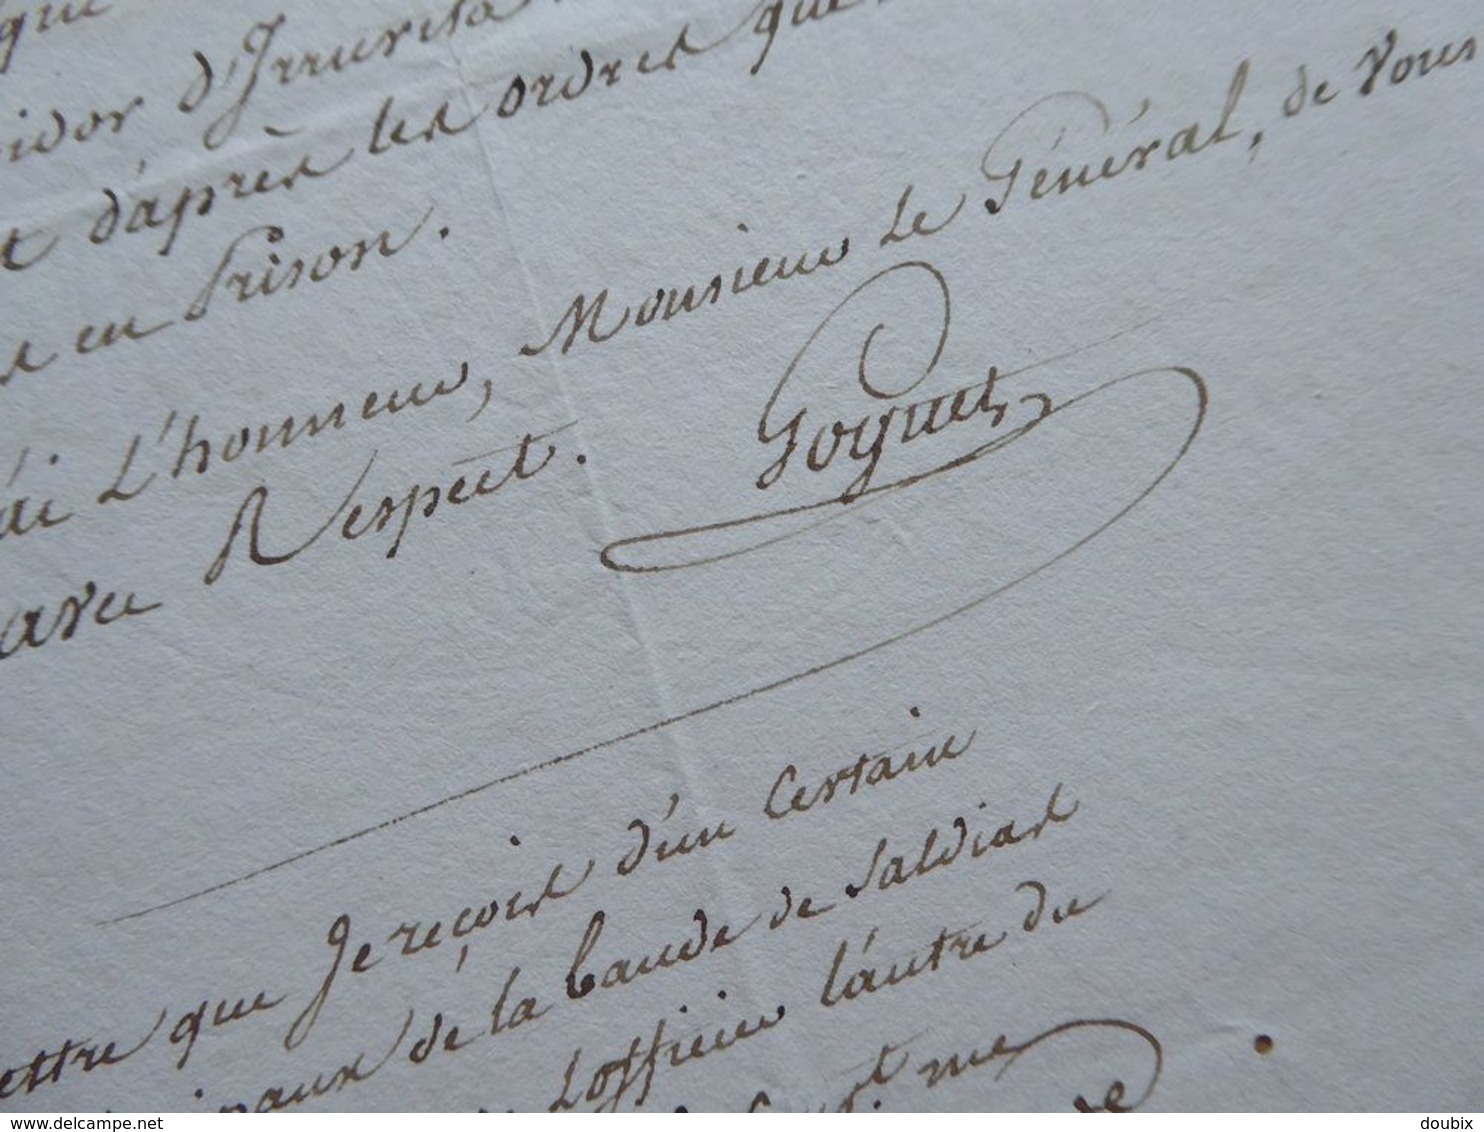 que
idor d'Irrurita
t d'après les ordres que
en Prison.
ai L'honneur, Monsieur Le Général, de Vous
avec Respect. Goguet
ettre que Je reçois d'un Certain
ipaux de la bande de Saldias
L'officier l'autre du
me
de
www.delcampe.net
doubix